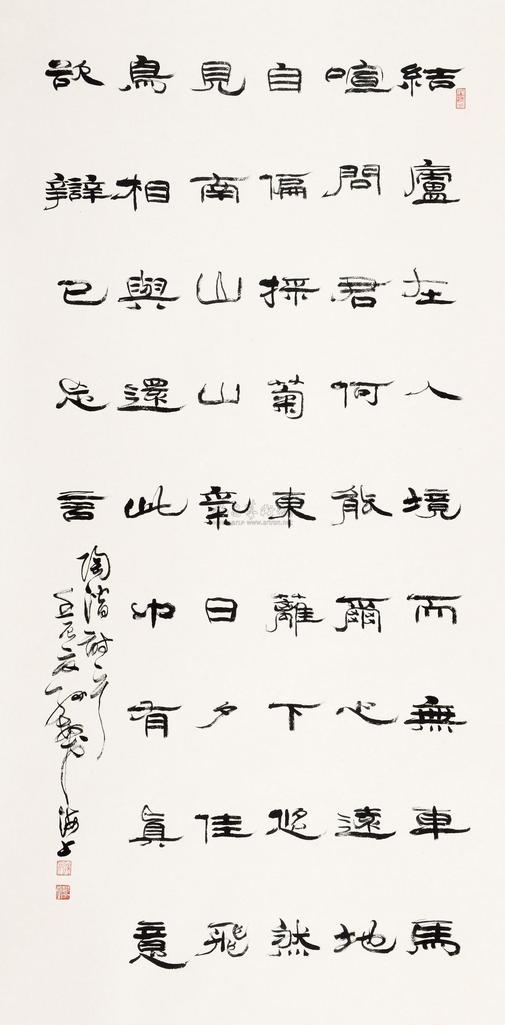 結廬在人境而無車馬
喧問君何能爾心遠地
自偏採菊東蘺下悠然
見南山山氣日夕佳飛
鳥相與還此中有眞意
欲辯已忘言
陶潛詩
海上